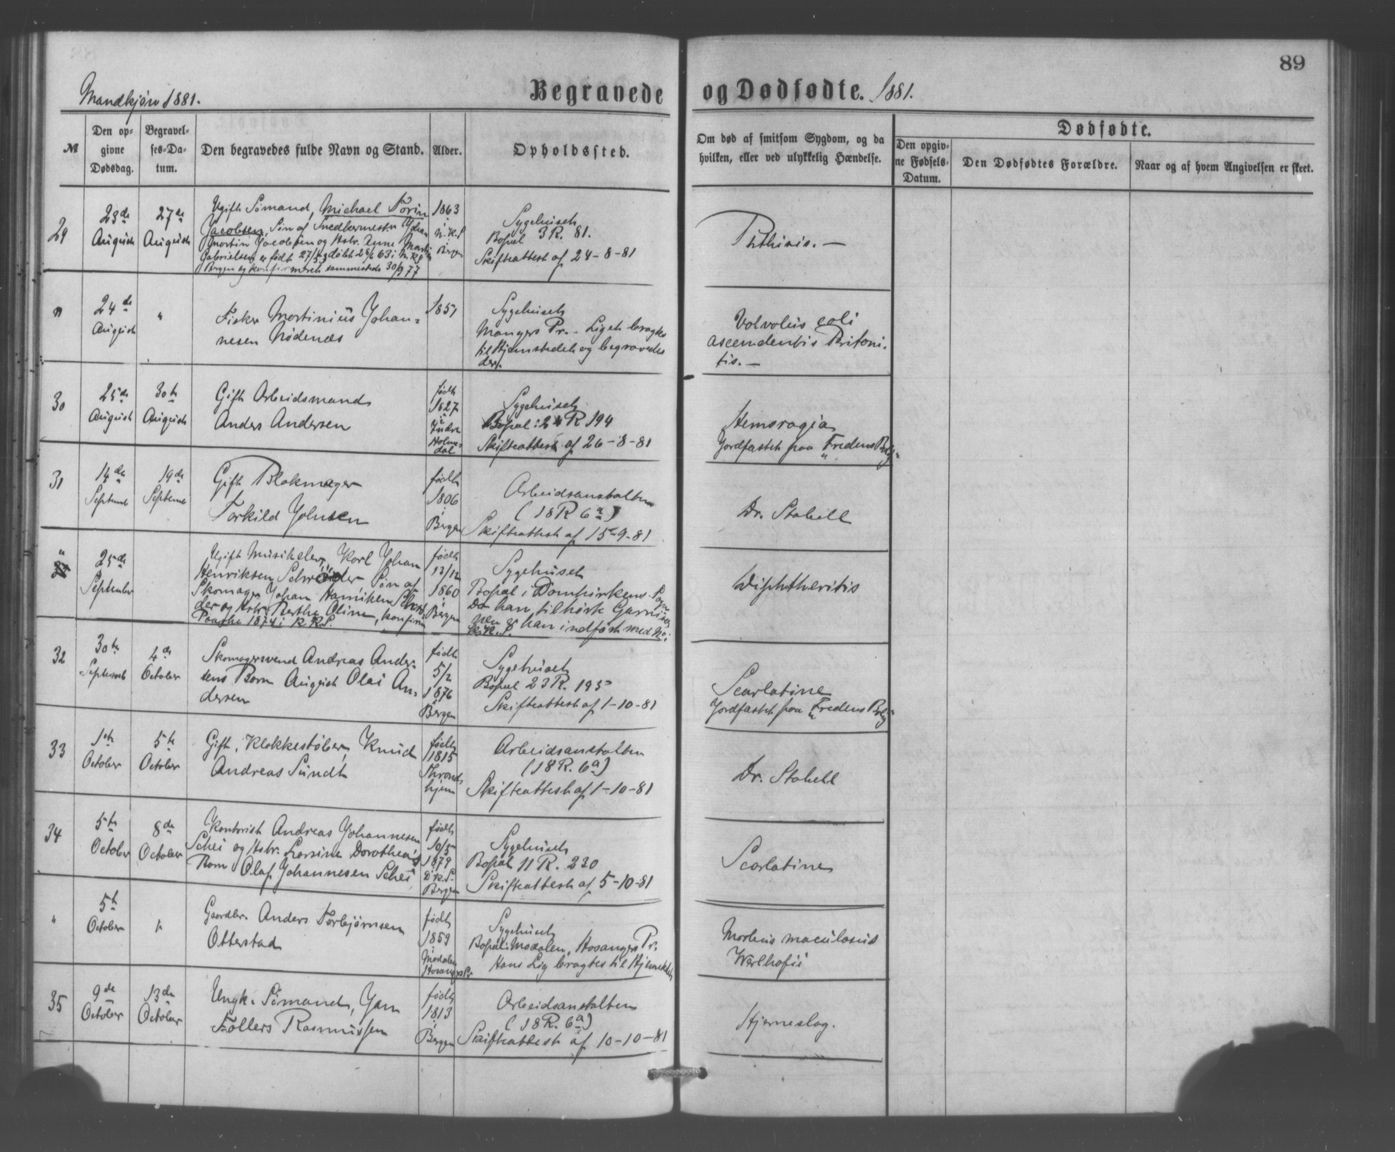 89
Mandkjøn 1881.
Begravede og Dødfødte. 1881.
№
Den opgivne Dødsdag.
Begravelses-Datum.
Den begravedes fulde Navn og Stand.
Alder.
Opholdssted.
Om død af smitsom Sygdom, og da hvilken, eller ved ulykkelig Hændelse.
Dødfødte.
Den opgivne Fødsels-Datum.
Den Dødfødtes Forældre.
Naar og af hvem Angivelsen er skeet.
29
23de August
27de August
Ugift Sømand, Michael
Jacobsen, Søn af
Martin Jacobsen og Hstr. Anne
Gabrielsen, er født 27/5, døbt 63 i N.K.S
Bergen og sammesteds 30/9 77
1863
N.K.S
Bergen
Sygehuset
Bopæl 3 R. 81.
Skifteattest af 24-8-81
Phthisis. —
"
24de August
"
Fisker Martinius Johan-
nesen Nødenæs
1857
Sygehuset
Mangers Pr. - Liget bragtes
til Hjemstedet og begravedes
der.
Volvolus coli
ascendentis Pritoni-
tis. —
30
25de August
30te August
Gift Arbeidsmand
Anders Andersen
født
1827
i
Indre
Holme-
dal
Sygehuset
Bopæl: 24 R 194
Skifteattest af 26-8-81
Hemoragia
Jordfæstet paa Fredens Bolig
31
14de Septemb
19de Septemb
Gift Blokmager
Torkild Johnsen
født
1806
i
Bergen
Arbeidsanstalten
(18 R 6a)
Skifteattest af 15-9-81
Dr. Stabell
"
25de September
Ugift Musikelev, Karl Johan
Henriksen Schrøder Søn af
Skomager Johan Henriksen
der og Hstr. Berthe Oline, konfir
1874 i K.K.S.
født
13/12
1860
i
Bergen
Sygehuset
Bopæl i Domkirkens Sogn
Da han tilhørte Garniso-
nen er han indført med No:
Diphtheritis
32
30te Septemb
4de October
Skomagersvend Andreas Ander-
sens Barn August Olai An-
dersen
født
5/2
1876
i
Bergen
Sygehuset
Bopæl 23 R. 195
Skifteattest af 1-10-81
Scarlatina
Jordfæstet paa Fredens Bolig
33
1ste October
5te October
Gift, Klokkestøber, Knud
Andreas Sundt
født
1815
Throndhjem
Arbeidsanstalten
(18 R. 6a)
Skifteattest af 1-10-81
Dr. Stabell
34
5te October
8de October
Kontorist Andreas Johannesen
Schei og Hstr. Larsine Dorotheas
Barn Olaf Johannesen Schei
født
10/5
1879
D.K.S.
Bergen
Sygehuset
Bopæl 11 R. 230
Skifteattest af 5-10-81
Scarlatina
"
5te October
"
Gaardbr. Anders Torbjørnsen
Otterstad
født
1859
i
Modalen
Hosanger Pr
Sygehuset
Bopæl: Modalen, Hosangers Pr.
Hans Lig bragtes til Hjemstedet
Morbus maculosus
Werlhofii
35
9de October
13de October
Ungk. Sømand, Jan
Follers Rasmussen
født
1813
i
Bergen
Arbeidsanstalten
(18 R. 6a)
Skifteattest af 10-10-81
Hjerneslag.